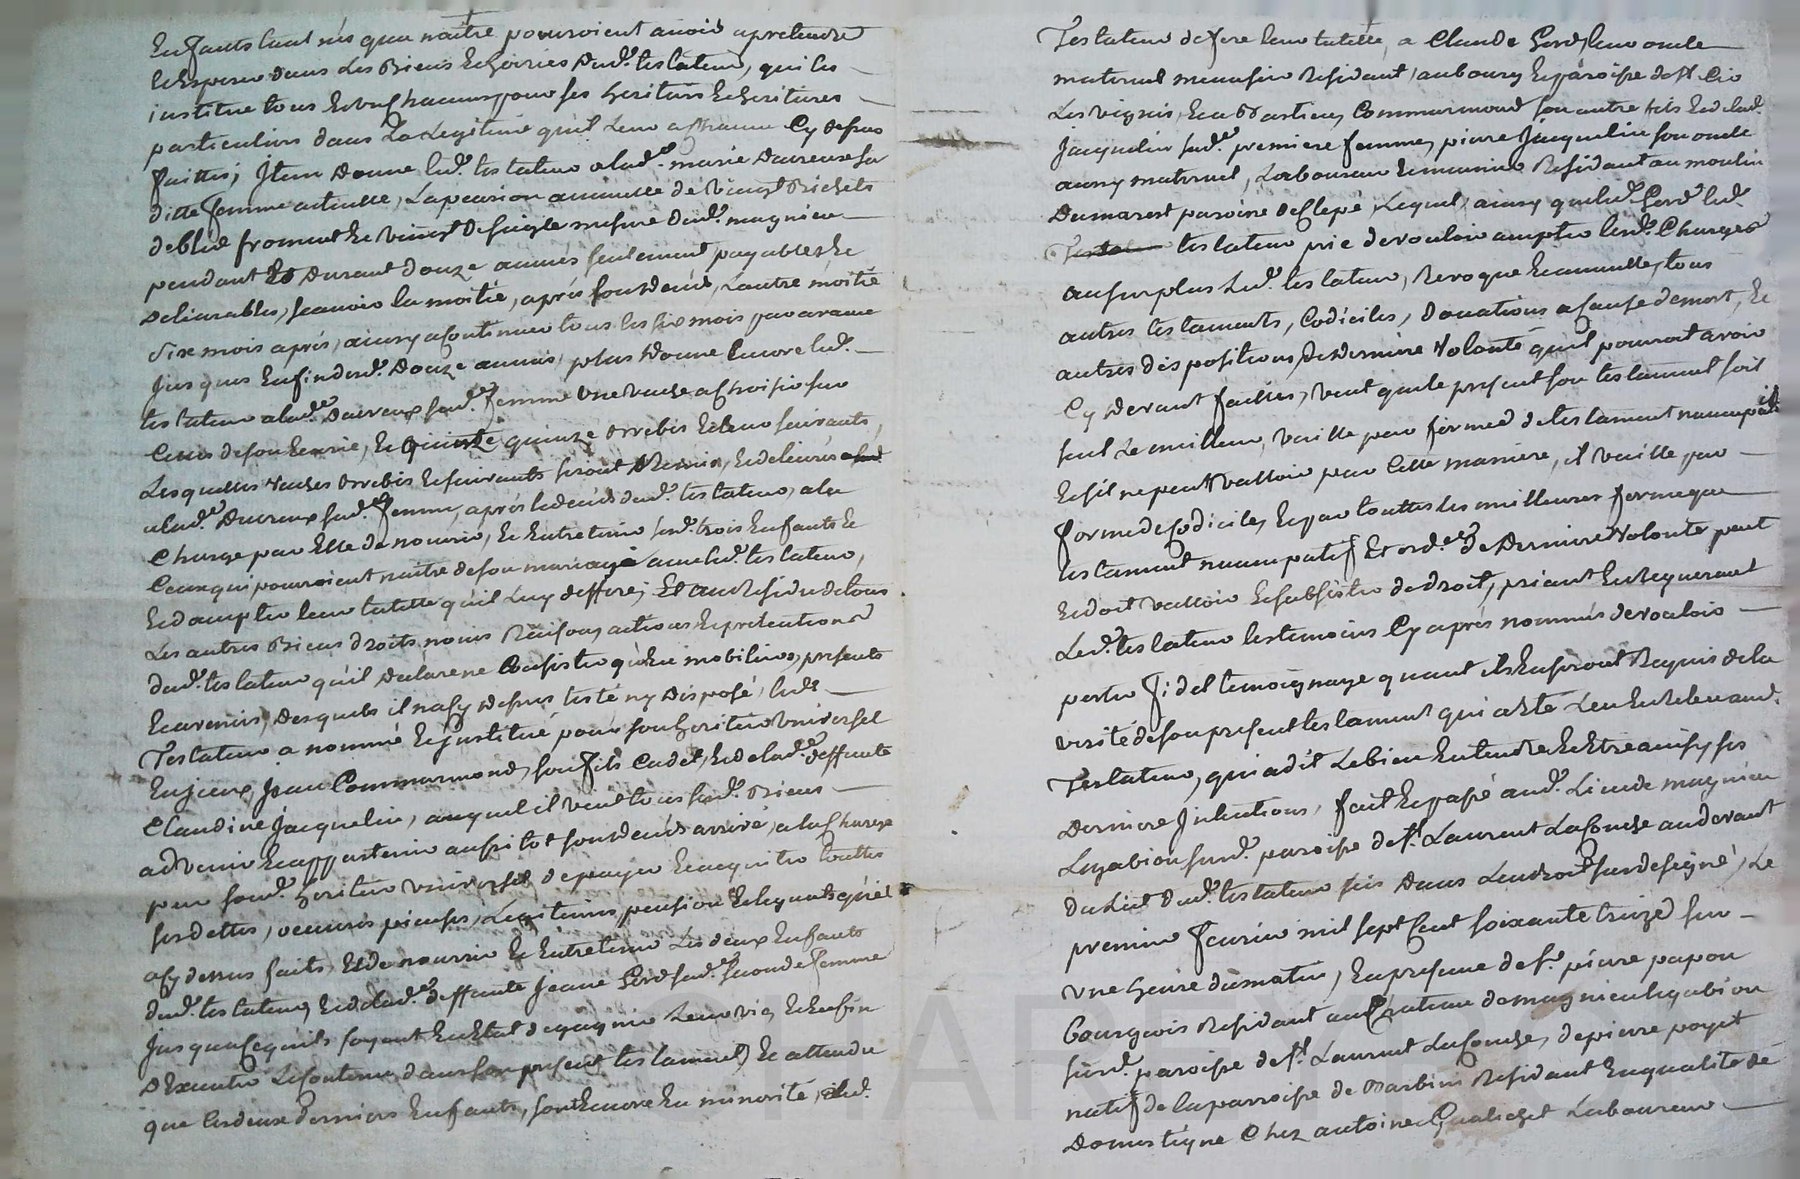 Enfants tant nés qu'a naître pourroient avoir a pretendre
Et Esperer dans Les Biens Et hoiries dud. testateur, qui les
institue tous Et un chacun pour ses heritiers Et heritieres
particuliers dans La Legitime qu'il Leur a Cy dessus
faitte; Item Donne led. testateur a lad.e marie Ducreux sa
ditte femme actuelle, La pension annuelle de vingt Bichets
de bled froment Et vingt de seigle mesure dud. magnieu
pendant Et Durant douze années seulement payables Et
delivrables, scavoir la moitié, après son Decés, L'autre moitié
six mois après, ainsy a continuer tous les six mois par avance
jusques Enfin desd. Douze années, plus Donne Encore led.
testateur a lad.e Ducreux sad.e femme une vache a choisir sur
Celles de son Ecurie, Et quinze Brebis Et leur suivants,
Lesquelles vaches Brebis Et suivants seront Remis, Et delivrés
a lad.e Ducreux sad.e femme, après le decés dud. testateur, a la
Charge par Elle de nourrir, Et Entretenir sesd. trois Enfants Et
Ceux qui pourroient naitre de son mariage avec led. testateur,
Et d'accepter leur tutelle qu'il Luy deffere; Et au Residu de tous
Les autres Biens droits noms Raisons actions Et pretentions
dud. testateur qu'il declare ne Consister qu'En mobiliers, presents
Et avenirs, Desquels il n'a Cy dessus testé ny Disposé, led.
Testateur a nommé Et institué pour son heritier universel
Jean Commarmond, son fils Cadet, Et de lad.e deffunte
Claudine Jacquelin, auquel il veut tous sesd. Biens
advenir Et appartenir aussitot son decés arrivé, a la Charge
par sond. heritier universel de payer Et acquiter touttes
ses dettes, oeuvres pieuses, Legitimes, pension Et Legats qu'il
a Cy dessus faits, Et de nourrir Et Entretenir Les deux Enfants
dud. testateur, Et de lad.e deffunte Jeanne sad.e seconde femme
jusqu'a Ce qu'ils soyent En Etat de gagner Leur vie, Et Enfin
d'Executer Le contenu dans son present testament, Et attendu
que les deux derniers Enfants, sont Encore En minorité, led.
Testateur defere leur tutelle, a Claude leur oncle
maternel meunsier Residant, au bourg Et paroisse de St. Cir
Les vignes, Et a Bastien Commarmond son autre fils Et de lad.
Jacquelin sad.e premiere femme, pierre Jacquelin son oncle
aussy maternel, Laboureur Et meunier Residant au moulin
Dumarest paroisse de , Lequel, ainsy que led. led.
testateur prie de vouloir accepter lesd. Charges
au surplus Led. testateur, Revoque Et annulle, tous
autres testaments, Codiciles, Donations a Cause de mort, Et
autres dispositions de derniere volonté qu'il pourroit avoir
Cy devant faittes, veut que le present son testament soit
seul Le meilleur, vaille par forme de testament nuncupatif
Et s'il ne peut valloir par Cette maniere, il vaille par
forme de Codicile, Et par touttes les meilleures forme que
testament nuncupatif Et ord.ce de derniere volonté peut
Et doit valloir Et subsister de droit, priant Et Requerant
Led. testateur les temoins Cy après nommés de vouloir
porter fidel temoignage quant ils En seront Requis de la
verité de son present testament qui a Eté Leu Et Releu aud.
Testateur, qui a dit Le bien Entendre Et Etre ainsy ses
Dernieres Intentions, fait Et passé aud. Lieu de magnieu
susd. paroisse de St. Laurent La Conche au devant
du Lict dud. testateur sis dans L'endroit sus designé, Le
premier fevrier mil sept Cent soixante treize sur
une heure du matin, En presence de Sr. pierre papon
Bourgeois Residant au Chateau de magnieu
susd. paroisse de St. Laurent La Conche, de pierre poyet
natif de la parroisse de Barbin Residant En qualité de
Domestique Chez antoine Laboureur